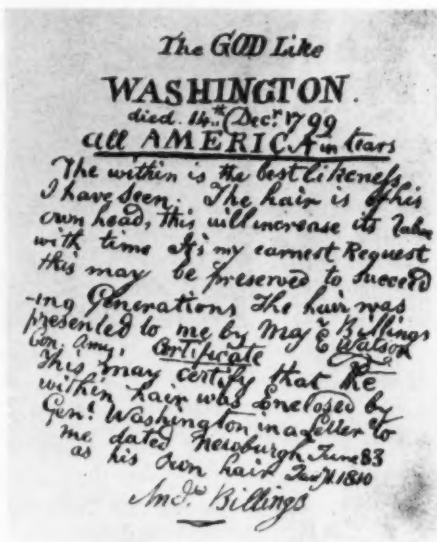 The GOD Like
WASHINGTON.
died 14th Decr. 1799
all AMERICA in tears
The within is the best likeness
I have seen. The hair is of his
own head, this will increase its Value
with time It's my earnest Request
this may be preserved to succeed
-ing Generations The hair was
presented to me by Maj E Billings
Con. Army, E Watson
Certificate
This may certify that the
within hair was Enclosed by
Genl. Washington in a Letter to
me dated Newburgh June 83
as his own hair 1810
Andw. Billings